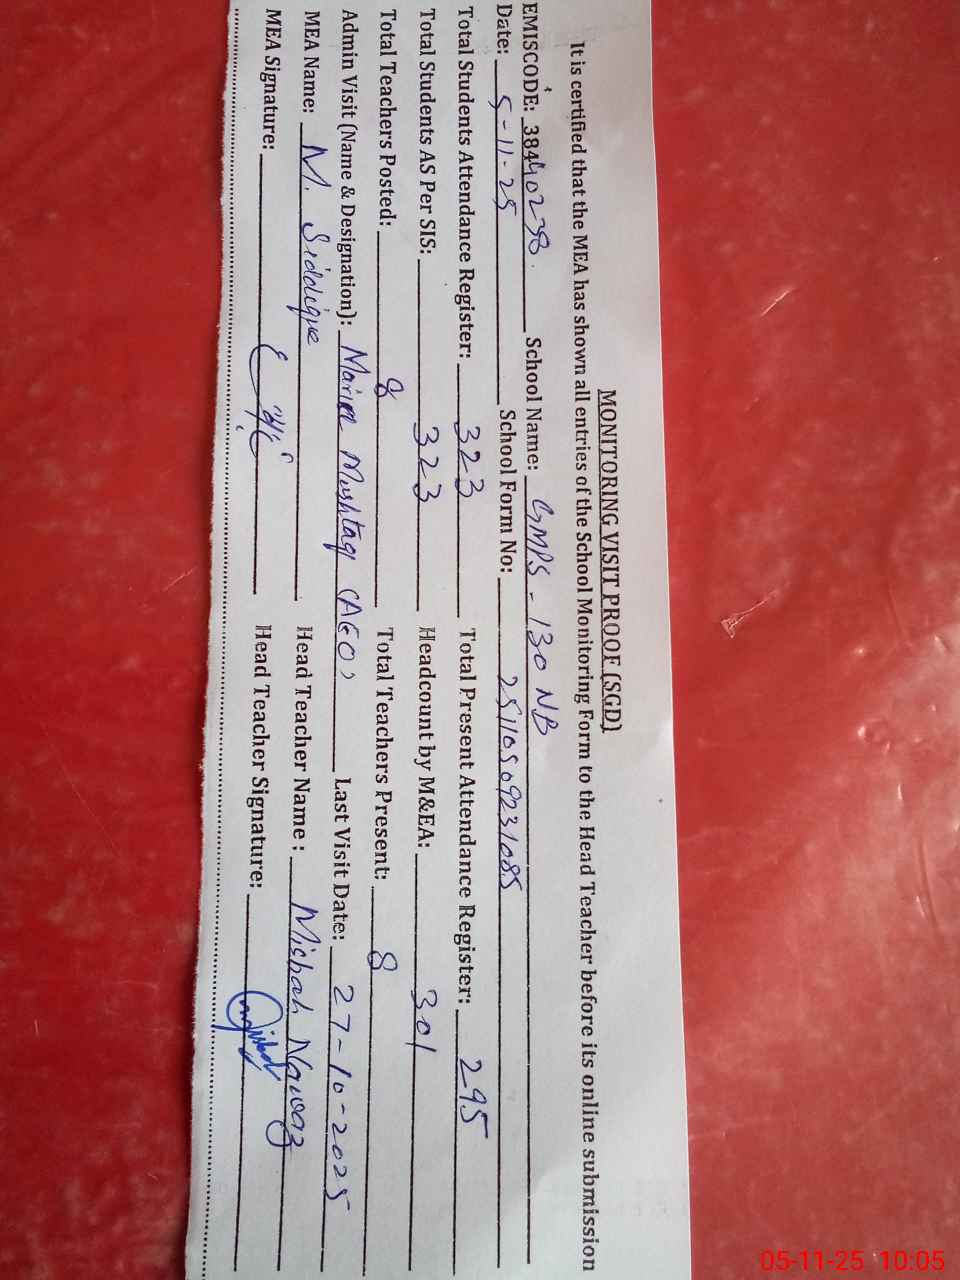 MONITORING VISIT PROOF (SGD)
It is certified that the MEA has shown all entries of the School Monitoring Form to the Head Teacher before its online submission
EMISCODE: 38440238. School Name: GMPS - 130 NB
Date: 5-11-25 School Form No: 25110509231085
Total Students Attendance Register: 323 Total Present Attendance Register: 295
Total Students AS Per SIS: 323 Headcount by M&EA: 301
Total Teachers Posted: 8 Total Teachers Present: 8
Admin Visit (Name & Designation): Maria Mushtaq (AEO) Last Visit Date: 27-10-2025
MEA Name: M. Siddique Head Teacher Name : Misbah Nawaz
MEA Signature: Head Teacher Signature:
05-11-25 10:05